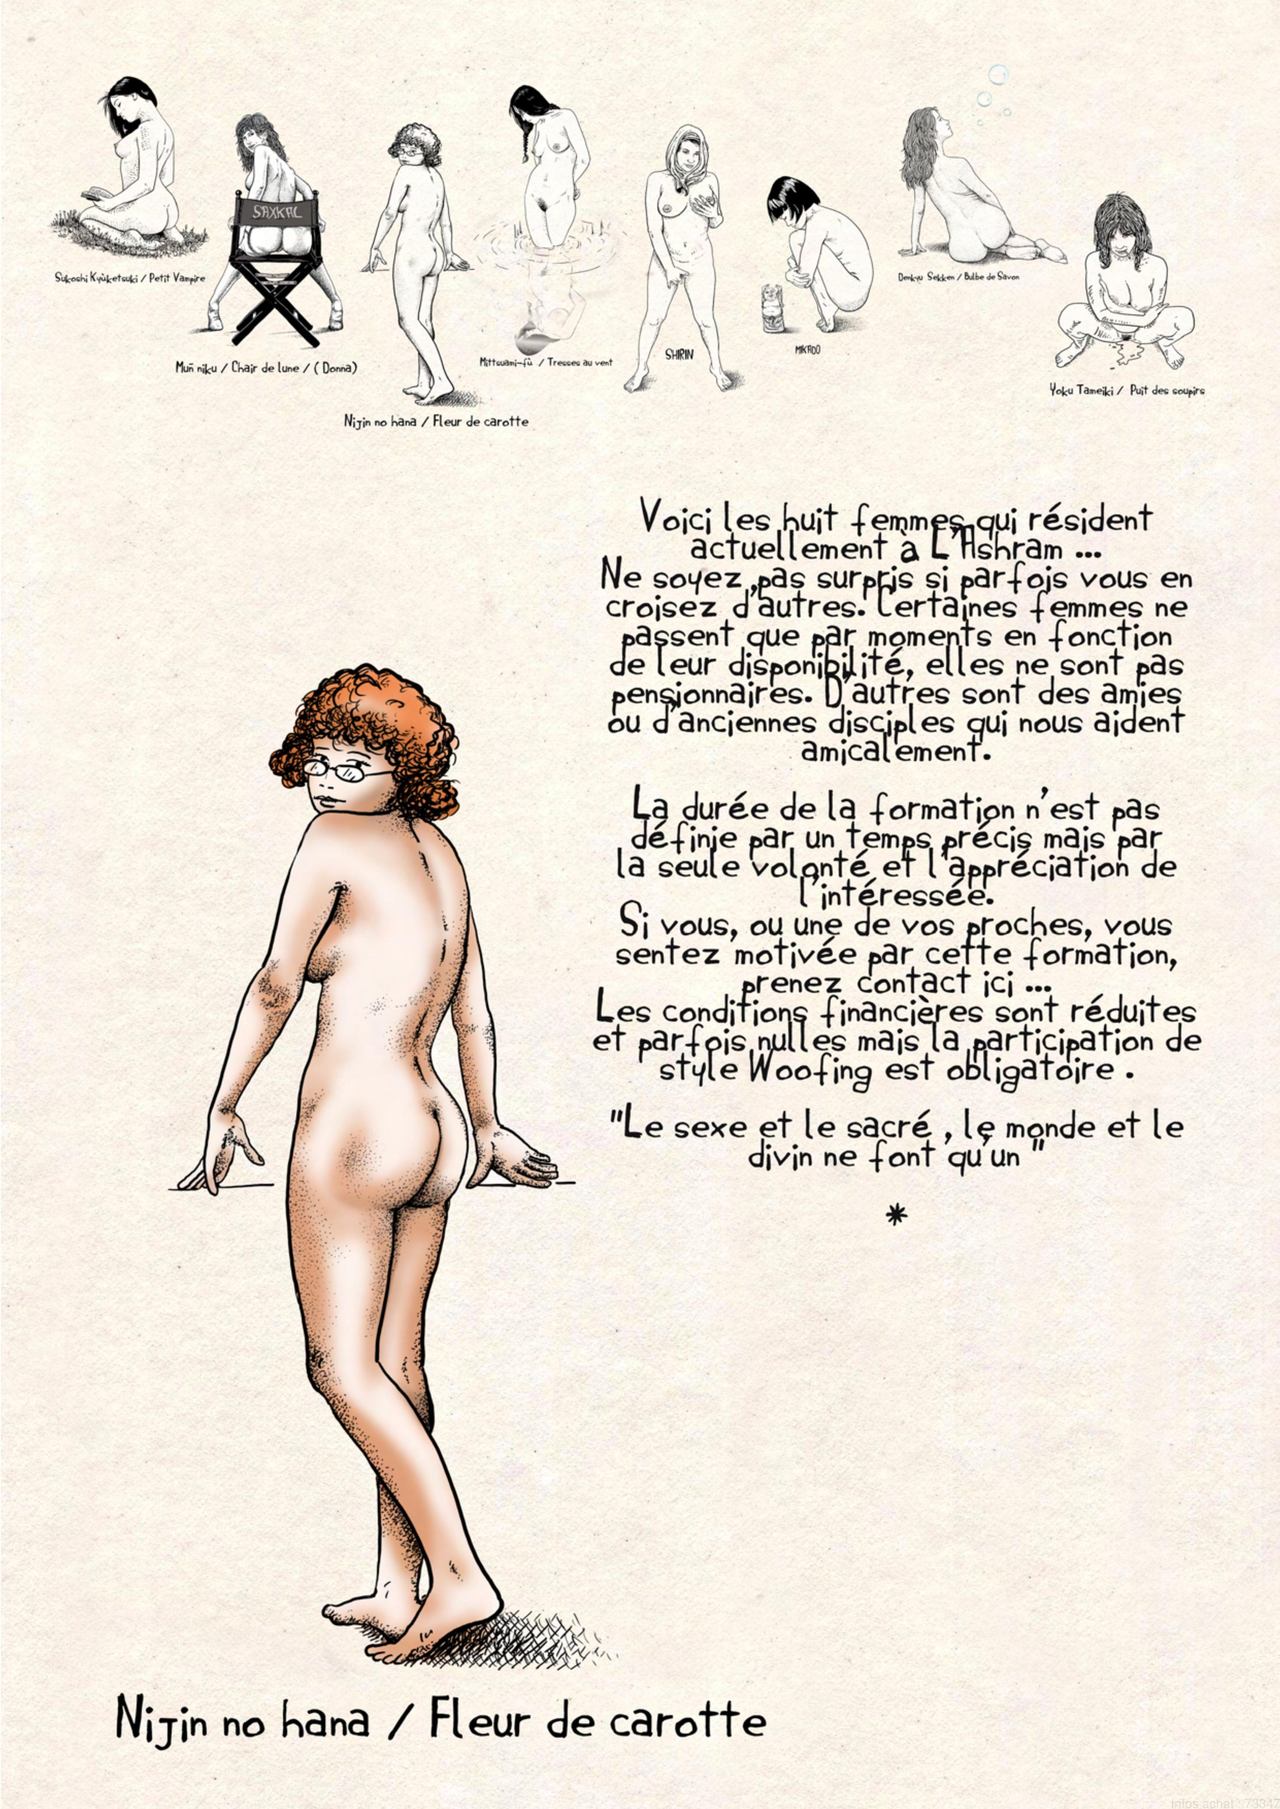 SAXKAL
Sukoshi Kyûketsuki / Petit Vampire
Denkyu Sekken / Bulbe de Savon
MIKADO
SHIRIN
Mittsuami-fû / Tresses au vent
Mun niku / Chair de lune / ( Donna)
Yoku Tameiki / Puit des soupirs
Nijin no hana / Fleur de carotte
Voici les huit femmes qui résident
actuellement à L'Ashram ...
Ne soyez pas surpris si parfois vous en
croisez d'autres. Certaines femmes ne
passent que par moments en fonction
de leur disponibilité, elles ne sont pas
pensionnaires. D'autres sont des amies
ou d'anciennes disciples qui nous aident
amicalement.
La durée de la formation n'est pas
définie par un temps précis mais par
la seule volonté et l'appréciation de
l'intéressée.
Si vous, ou une de vos proches, vous
sentez motivée par cette formation,
prenez contact ici ...
Les conditions financières sont réduites
et parfois nulles mais la participation de
style Woofing est obligatoire .
"Le sexe et le sacré , le monde et le
divin ne font qu'un "
*
Nijin no hana / Fleur de carotte